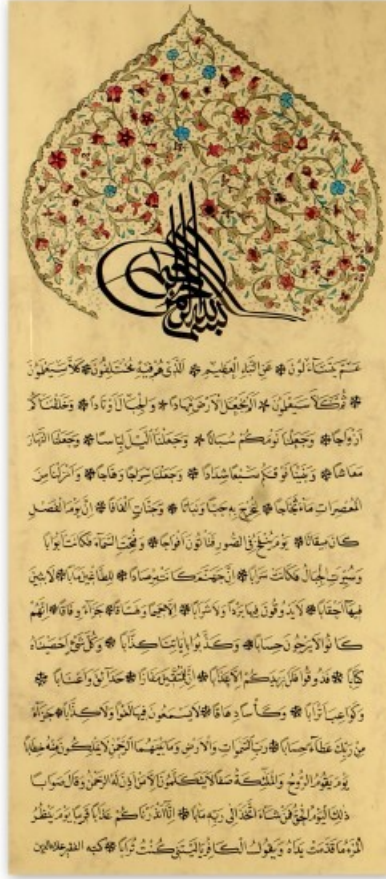 بسم الله الرحمن الرحيم
عَمَّ يَتَسَاءَلُونَ ❁ عَنِ النَّبَإِ الْعَظِيمِ ❁ اَلَّذِى هُمْ فِيهِ مُخْتَلِفُونَ ❁ كَلَّا سَيَعْلَمُونَ
❁ ثُمَّ كَلَّا سَيَعْلَمُونَ ❁ اَلَمْ نَجْعَلِ الْاَرْضَ مِهَادًا ❁ وَالْجِبَالَ اَوْتَادًا ❁ وَخَلَقْنَاكُمْ
اَزْوَاجًا ❁ وَجَعَلْنَا نَوْمَكُمْ سُبَاتًا ❁ وَجَعَلْنَا الَّيْلَ لِبَاسًا ❁ وَجَعَلْنَا النَّهَارَ
مَعَاشًا ❁ وَبَنَيْنَا فَوْقَكُمْ سَبْعًا شِدَادًا ❁ وَجَعَلْنَا سِرَاجًا وَهَّاجًا ❁ وَاَنْزَلْنَا مِنَ
الْمُعْصِرَاتِ مَاءً ثَجَّاجًا ❁ لِنُخْرِجَ بِهِ حَبًّا وَنَبَاتًا ❁ وَجَنَّاتٍ اَلْفَافًا ❁ اِنَّ يَوْمَ الْفَصْلِ
كَانَ مِيقَاتًا ❁ يَوْمَ يُنْفَخُ فِى الصُّورِ فَتَاْتُونَ اَفْوَاجًا ❁ وَفُتِحَتِ السَّمَاءُ فَكَانَتْ اَبْوَابًا
وَسُيِّرَتِ الْجِبَالُ فَكَانَتْ سَرَابًا ❁ اِنَّ جَهَنَّمَ كَانَتْ مِرْصَادًا ❁ لِلطَّاغِينَ مَاٰبًا ❁ لَابِثِينَ
فِيهَا اَحْقَابًا ❁ لَا يَذُوقُونَ فِيهَا بَرْدًا وَلَا شَرَابًا ❁ اِلَّا حَمِيمًا وَغَسَّاقًا ❁ جَزَاءً وِفَاقًا ❁ اِنَّهُمْ
كَانُوا لَا يَرْجُونَ حِسَابًا ❁ وَكَذَّبُوا بِاٰيَاتِنَا كِذَّابًا ❁ وَكُلَّ شَىْءٍ اَحْصَيْنَاهُ
كِتَابًا ❁ فَذُوقُوا فَلَنْ نَزِيدَكُمْ اِلَّا عَذَابًا ❁ اِنَّ لِلْمُتَّقِينَ مَفَازًا ❁ حَدَائِقَ وَاَعْنَابًا ❁
وَكَوَاعِبَ اَتْرَابًا ❁ وَكَاْسًا دِهَاقًا ❁ لَا يَسْمَعُونَ فِيهَا لَغْوًا وَلَا كِذَّابًا ❁ جَزَاءً
مِنْ رَبِّكَ عَطَاءً حِسَابًا ❁ رَبِّ السَّمٰوَاتِ وَالْاَرْضِ وَمَا بَيْنَهُمَا الرَّحْمٰنِ لَا يَمْلِكُونَ مِنْهُ خِطَابًا
يَوْمَ يَقُومُ الرُّوحُ وَالْمَلٰئِكَةُ صَفًّا لَا يَتَكَلَّمُونَ اِلَّا مَنْ اَذِنَ لَهُ الرَّحْمٰنُ وَقَالَ صَوَابًا
ذٰلِكَ الْيَوْمُ الْحَقُّ فَمَنْ شَاءَ اتَّخَذَ اِلٰى رَبِّهِ مَاٰبًا ❁ اِنَّا اَنْذَرْنَاكُمْ عَذَابًا قَرِيبًا يَوْمَ يَنْظُرُ
الْمَرْءُ مَا قَدَّمَتْ يَدَاهُ وَيَقُولُ الْكَافِرُ يَا لَيْتَنِى كُنْتُ تُرَابًا ❁ كتبه الفقير علاءالدين